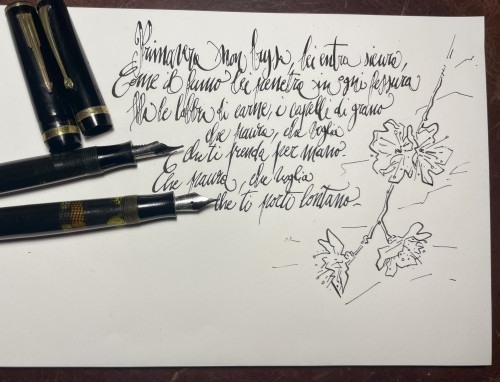 Primavera non bussa, lei entra sicura,
Come il fumo lei penetra in ogni fessura
Ha le labbra di carne, i capelli di grano
che paura, che voglia
che ti prenda per mano.
Che paura, che voglia
che ti porti lontano.